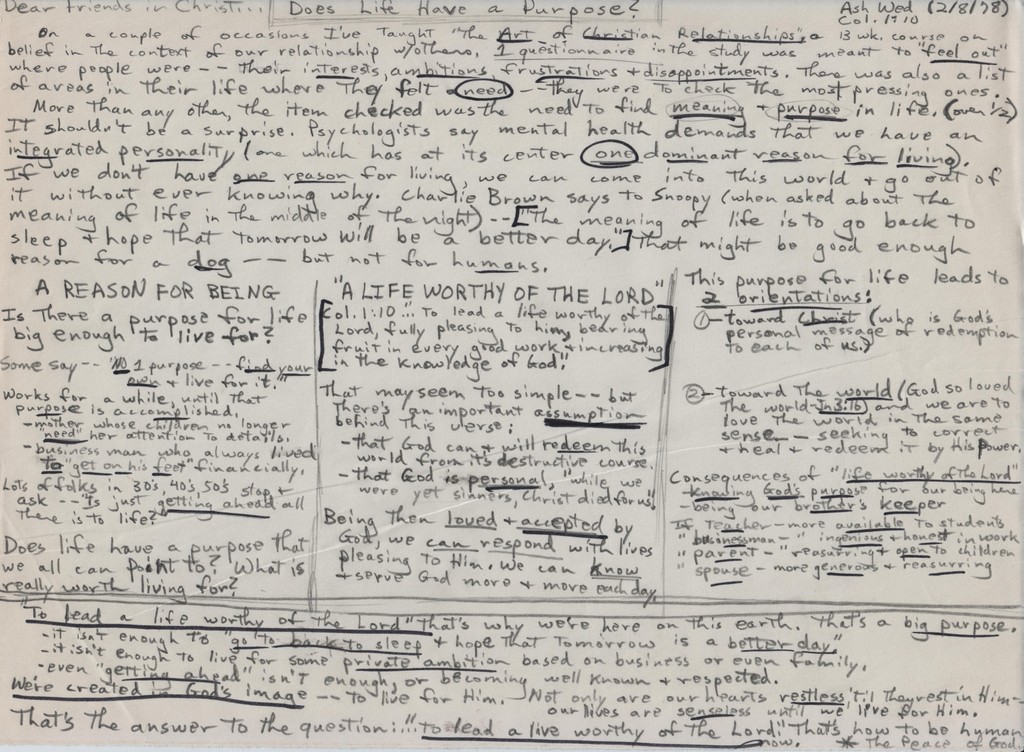 Dear Friends in Christ...
Does Life Have a Purpose?
Ash Wed (2/8/78)
Col. 1:10
On a couple of occasions I've taught "The Art of Christian Relationships", a 13 wk. course on
belief in the context of our relationship w/others. 1 questionnaire in the study was meant to "feel out"
where people were -- their interests, ambitions, frustrations + disappointments. There was also a list
of areas in their life where they felt need -- they were to check the most pressing ones.
More than any other, the item checked was the need to find meaning + purpose in life. (over 1/2)
It shouldn't be a surprise. Psychologists say mental health demands that we have an
integrated personality, (one which has at its center one dominant reason for living).
If we don't have one reason for living, we can come into this world + go out of
it without ever knowing why. Charlie Brown says to Snoopy (when asked about the
meaning of life in the middle of the night) -- ["The meaning of life is to go back to
sleep + hope that tomorrow will be a better day."] That might be good enough
reason for a dog -- but not for humans.
A REASON FOR BEING
Is there a purpose for life
big enough to live for?
Some say -- "No 1 purpose -- find your
own + live for it."
Works for a while, until that
purpose is accomplished.
-mother whose children no longer
"need" her attention to details.
-business man who always lived
to "get on his feet" financially.
Lots of folks in 30's, 40's, 50's stop +
ask -- "Is just getting ahead all
there is to life?"
Does life have a purpose that
we all can point to? What is
really worth living for?
"A LIFE WORTHY OF THE LORD"
[Col. 1:10 ... To lead a life worthy of the
Lord, fully pleasing to him, bearing
fruit in every good work + increasing
in the knowledge of God."]
That may seem too simple -- but
there's an important assumption
behind this verse:
-that God can + will redeem this
world from its destructive course.
-that God is personal, "while we
were yet sinners, Christ died for us."
Being then loved + accepted by
God, we can respond with lives
pleasing to Him. We can know
+ serve God more + more each day.
This purpose for life leads to
2 orientations:
① -toward Christ (who is God's
personal message of redemption
to each of us.)
② -toward the world (God so loved
the world-Jn 3:16) and we are to
love the world in the same
sense -- seeking to correct
+ heal + redeem it by His power.
Consequences of "life worthy of the Lord"
-knowing God's purpose for our being here
-being our brother's keeper
If teacher - more available to students
" businessman - " ingenious + honest in work
" parent - " reasurring + open to children
" spouse - more generous + reasurring
"To lead a life worthy of the Lord" that's why we're here on this earth. That's a big purpose.
-it isn't enough to "go to back to sleep + hope that tomorrow is a better day."
-it isn't enough to live for some private ambition based on business or even family.
-even "getting ahead" isn't enough, or becoming well known + respected.
We're created in God's image -- to live for Him. Not only are our hearts restless 'til they rest in Him-
our lives are senseless until we live for Him.
That's the answer to the question: "...To lead a live worthy of the Lord." That's how to be human
now. * The Peace of God